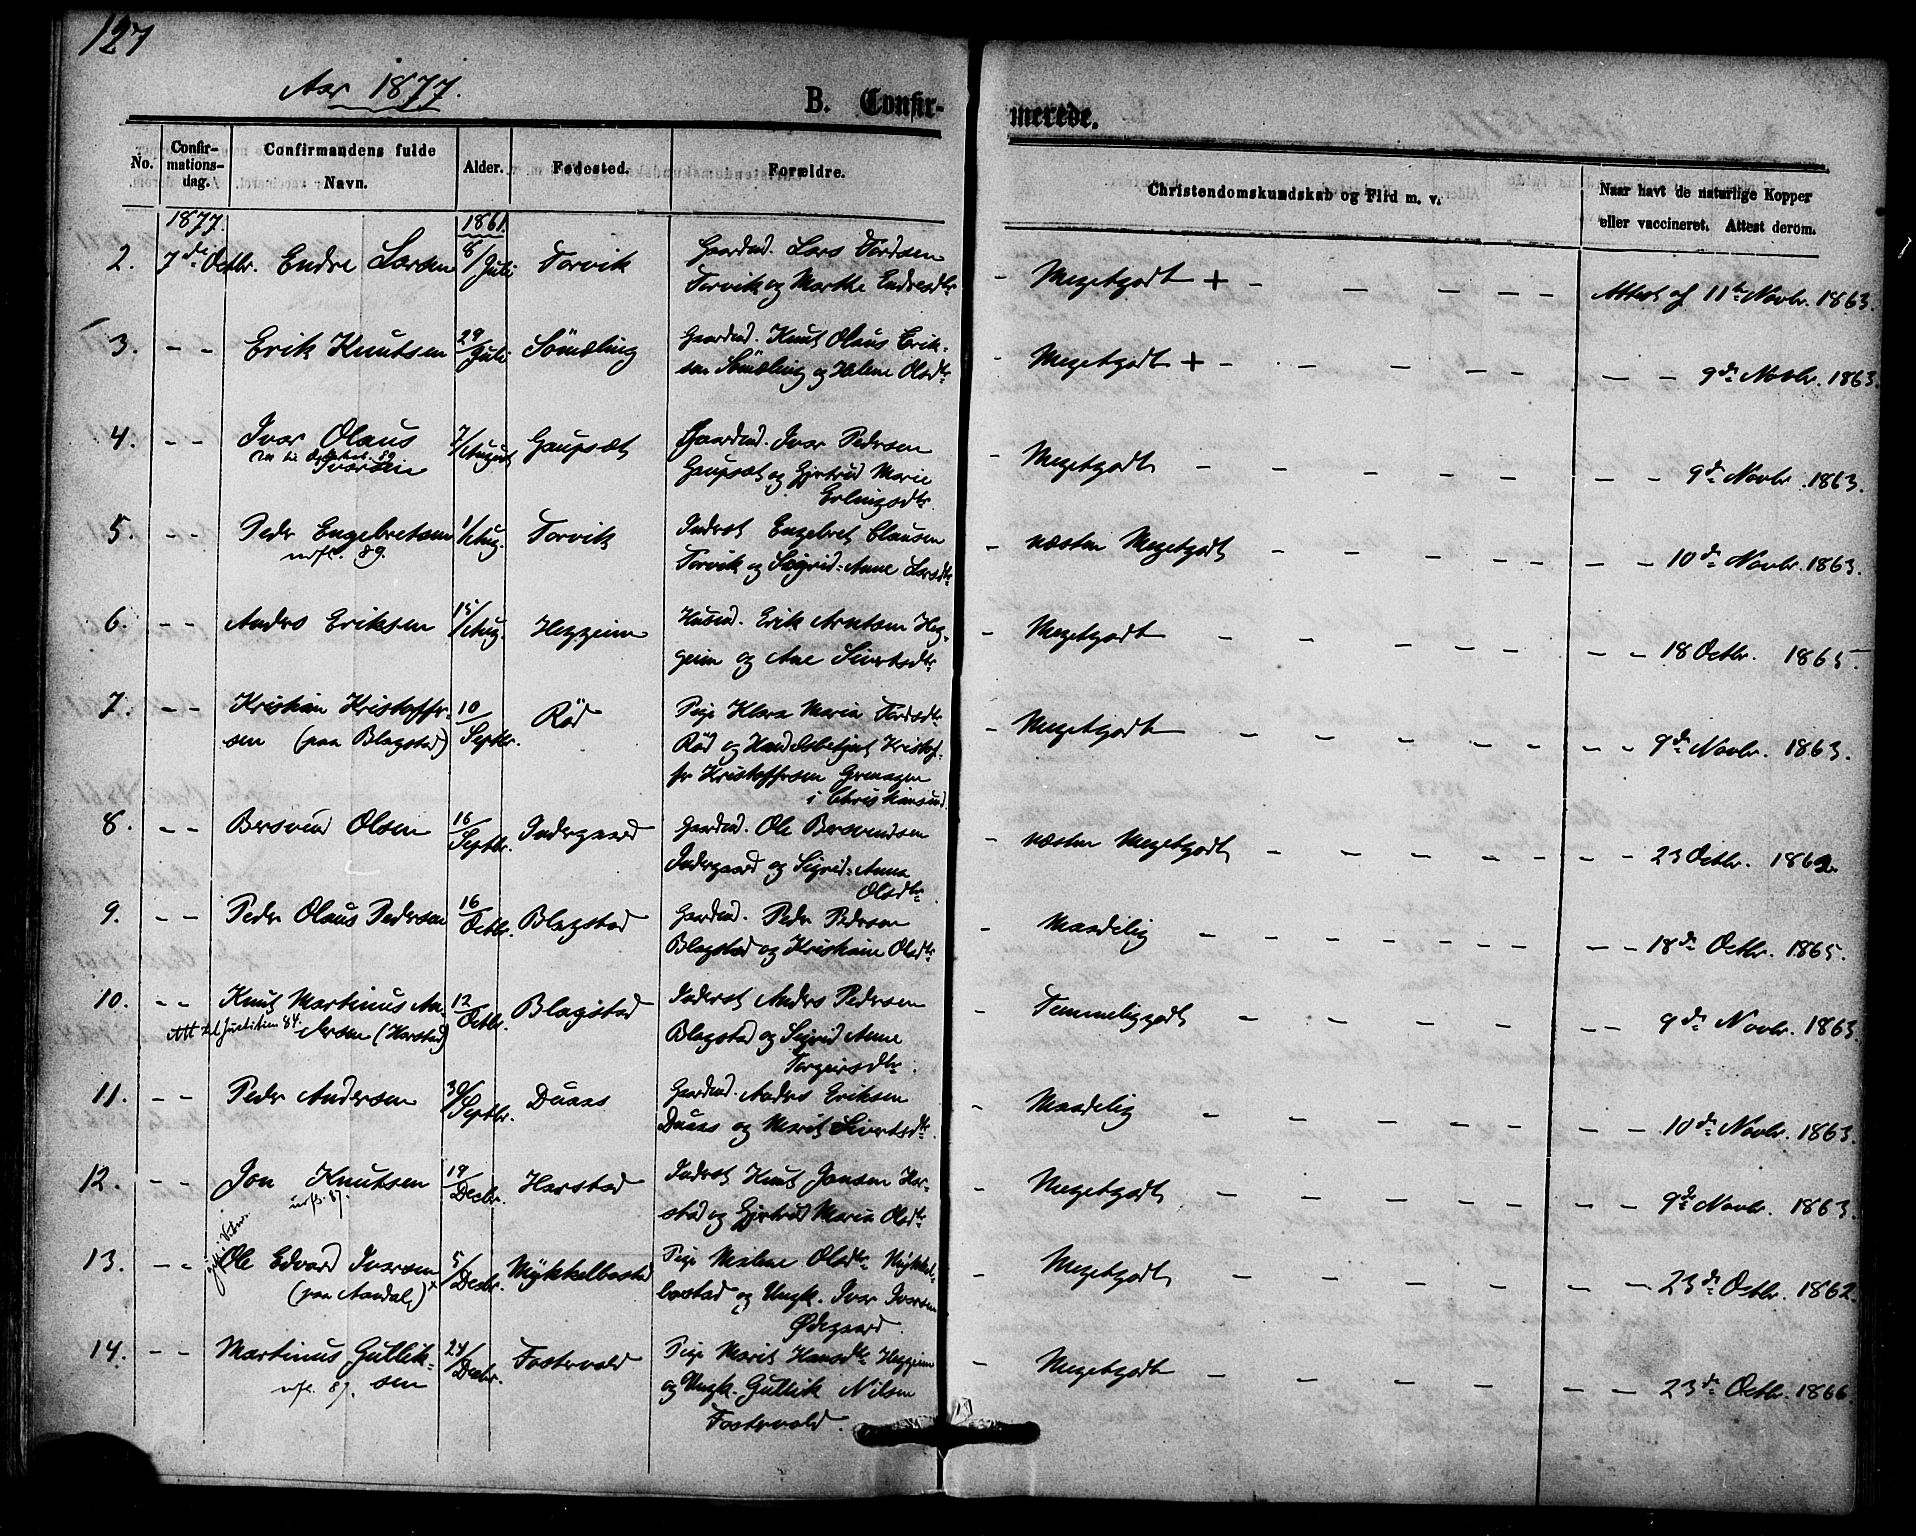 127
Aar 1877.
B. Confir-
merede.
No.
Confir-
mations-
dag.
Confirmandens fulde
Navn.
Alder.
Fødested.
Forældre.
Christendomskundskab og Flid m. v.
Naar havt de naturlige Kopper
eller vaccineret. Attest derom.
1877.
1861.
2. 7de Octbr. Endre Larsen 8/Juli Torvik
Gaardmd. Lars Tordsen
Torvik og Marthe Endresdtr
- Megetgodt + - - - - - Attest af 11te Novbr. 1863.
3. - - Erik Knutsen 29/Juli Sömæling
Gaardmd. Knut Olaus Erik-
sen Sömæling og Helene Olsdtr
- Megetgodt + - - - - - - - 9de Novbr. 1863.
4. - - Ivar Olaus
Ivarsen
7/August Gaupsæt
Gaardmd. Ivar Pedersen
Gaupsæt og Gjertrud Marie
Erlingsdtr.
- Megetgodt - - - - - - - 9de Novbr. 1863.
5. - - Peder Engebretsen 1/Aug. Torvik
89.
Inderst Engebret Clausen
Torvik og Sigrid-Anne Larsdtr
- næsten Megetgodt - - - - - - - 10de Novbr. 1863.
6. - - Anders Eriksen 15/Aug. Heggeim
Husmd. Erik Arntsen Heg-
geim og Ane Sivertsdtr
- Megetgodt - - - - - - - 18 Octbr. 1865
7. - - Kristian Kristoffer-
sen (paa Blagstad)
10/Septbr. Röd
Pige Klara Maria Tordsdtr
Röd og Handelsbetjent Kristof-
fer Kristoffersen
i Christiansund.
- Megetgodt - - - - - - - 9de Novbr. 1863.
8. - - Bersvend Olsen 16/Septbr. Indergaard
Gaardmd. Ole Bersvendsen
Indergaard og Sigrid-Anna
Olsdtr.
- næsten Megetgodt - - - - - - - 23 Octbr. 1862.
9. - - Peder Olaus Pedersen 16/Octbr. Blagstad
Gaardmd. Peder Pedersen
Blagstad og Kristiane Olsdtr
- Maadelig - - - - - - - 18de Octbr. 1865.
10. - - Knut Martinus An-
dersen (Harstad)
12/Octbr. Blagstad
Inderst Anders Pedersen
Blagstad og Sigrid Anne
Torgeirsdtr.
- Temmeliggodt - - - - - - - 9de Novbr. 1863.
11. - - Peder Andersen 30/Septbr. Duaas
Gaardmd. Anders Eriksen
Duaas og Marit Sivertsdtr.
- Maadelig - - - - - - - 10de Novbr. 1863.
12. - - Jon Knutsen 19/Decbr. Harstad
87.
Inderst Knut Jonsen Har-
stad og Gjertrud Maria Olsdtr
- Megetgodt - - - - - - - 9de Novbr. 1863.
13. - - Ole Edvard Ivarsen
(paa Aandal) x
5/Decbr. Mykkelbostad
Pige Malene Olsdtr Mykkel-
bostad og Ungk. Ivar Iversen
Ødegaard.
- Megetgodt - - - - - - - 23de Octbr. 1862.
14. - - Martinus Gullik-
sen
87.
24/Decbr. Fostervold
Pige Marit Hansdtr Heggeim
og Ungk. Gullik Nilsen
Fostervold.
- Megetgodt - - - - - - - 23de Octbr. 1866.